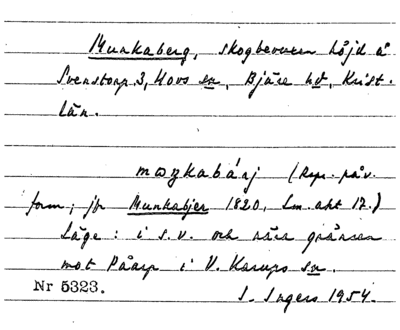 Munkaberg, skogbevuxen höjd å
Svenstorp 3, Hovs sn, Bjäre hd, Krist.
län.
(Repr. påv.
form; jfr Munkabjer 1820, Lm. akt 17.)
Läge: i s.v. och nära gränsen
mot Påarp i V. Karups sn.
Nr 5323.
S. Ingers 1954.